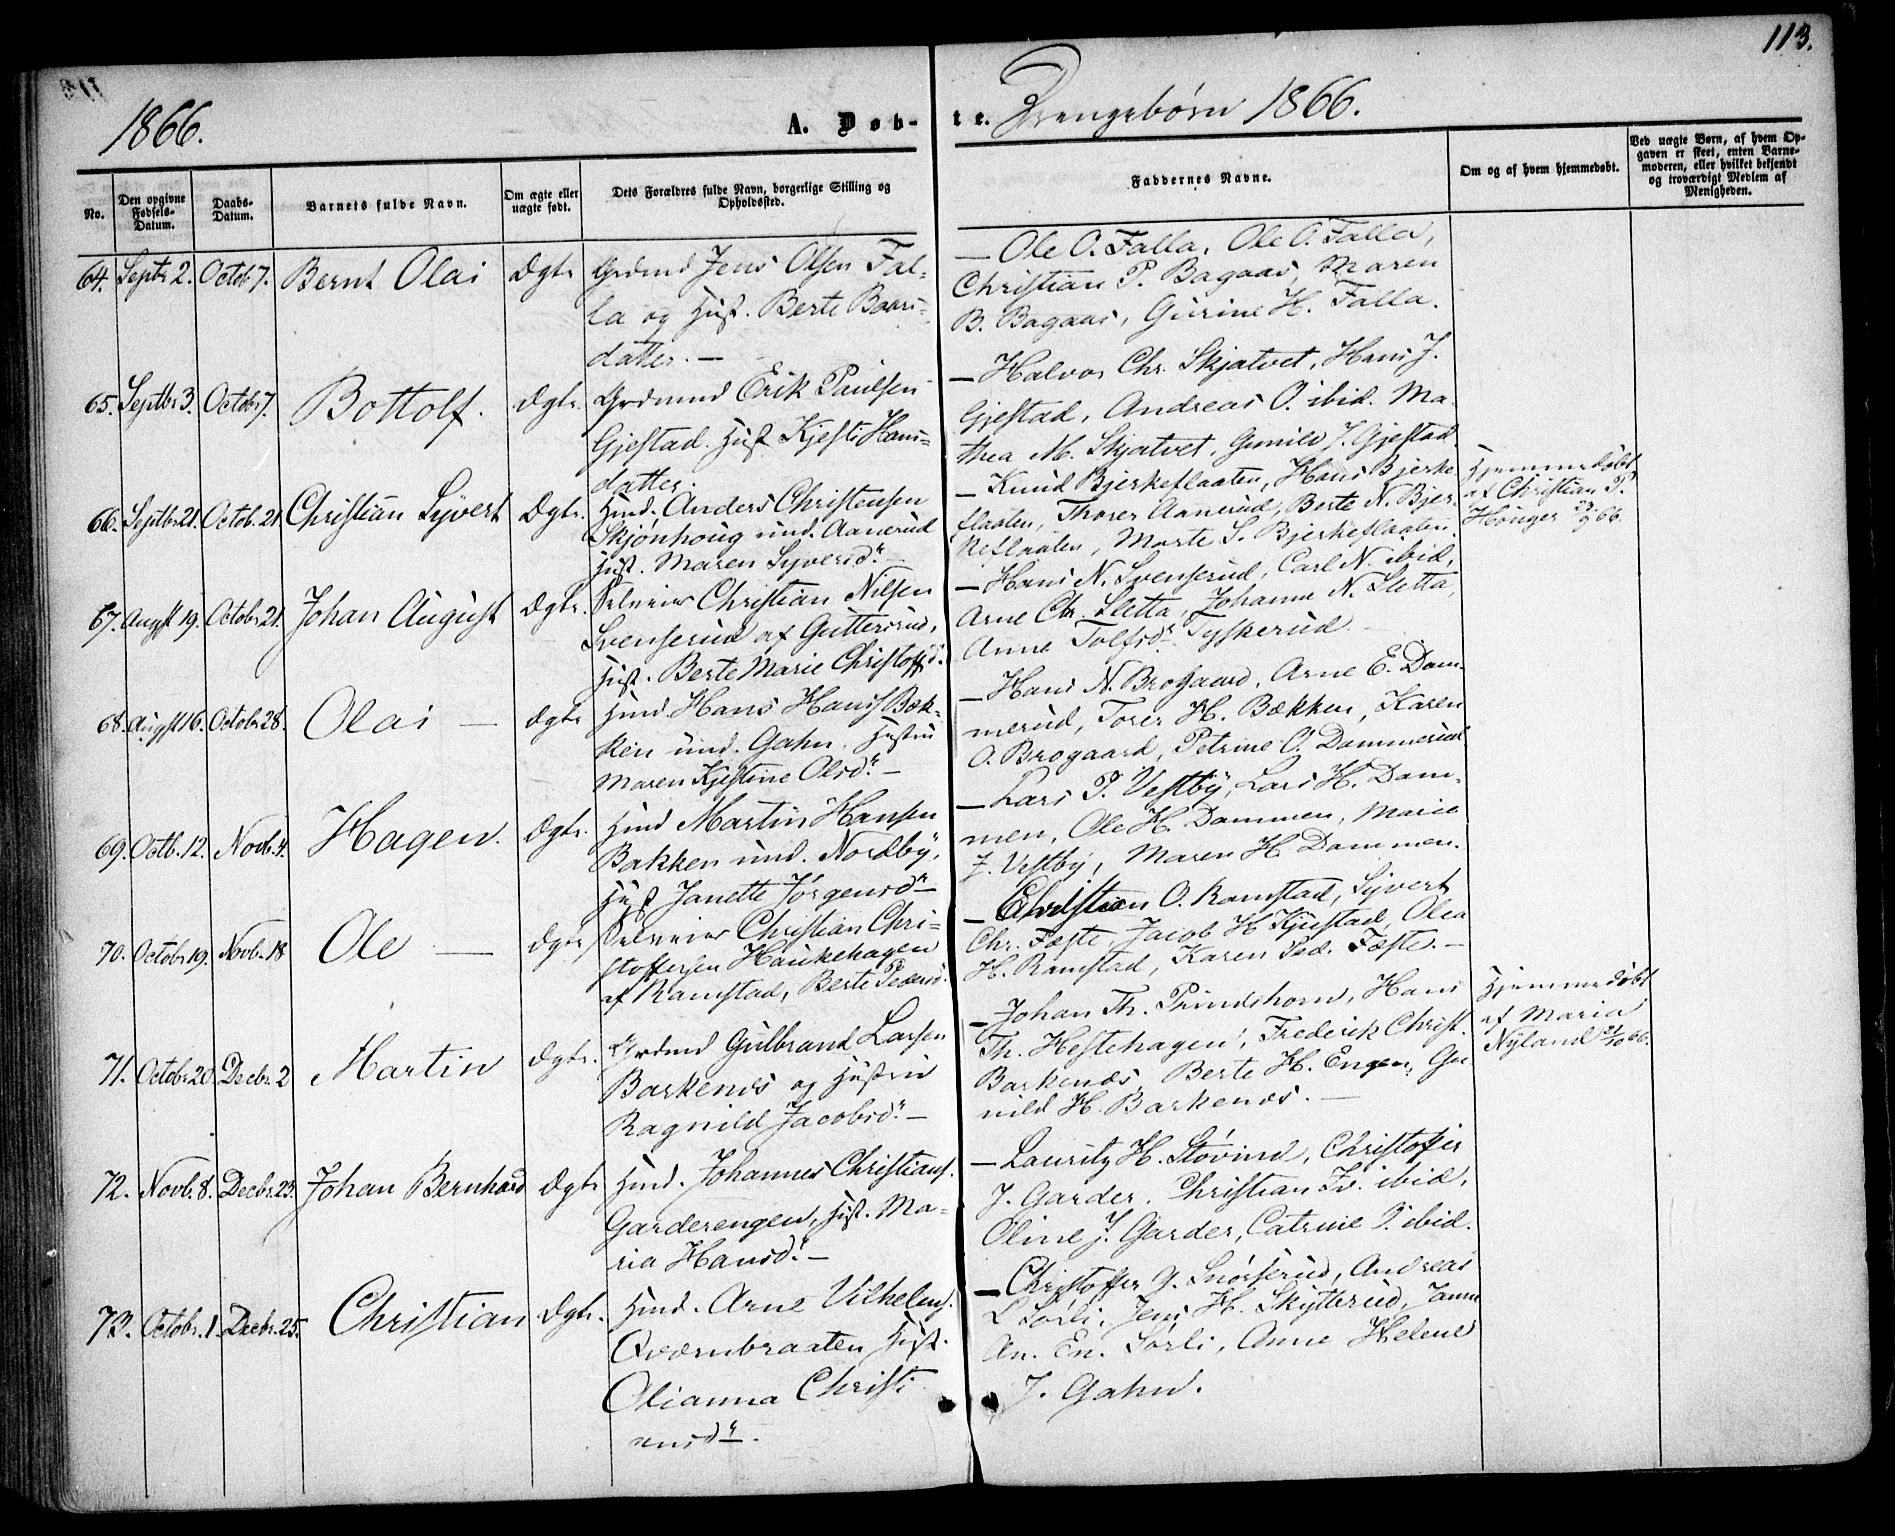 113.
1866.
A. Døb-
te. Drengebørn 1866.
No.
Den opgivne Fødsels-Datum.
Daabs-Datum.
Barnets fulde Navn.
Om ægte eller uægte født.
Dets Forældres fulde Navn, borgerlige Stilling og Opholdssted.
Faddernes Navne.
Om og af hvem hjemmedøbt.
Ved uægte Børn, af hvem Op-
gaven er skeet, enten Barne-
moderen, eller hvilket bekjendt
og troværdigt Medlem af
Menigheden.
64. Septbr 2. Octob 7. Bernt Olai Ægte
Grdmd Jens Olsen Fal-
la og Hust. Berte Baars-
datter. —
— Ole O. Falla, Ole O. Falla,
Christian P. Bagaas, Maren
B. Bagaas, Gurine H. Falla.
65. Septbr 3. Octobr 7. Bottolf. Ægte.
Grdmd Erik Paulsen
Gjestad. Hust Kjersti Hans-
datter.
— Halvor Chr. Skjatvet, Hans J.
Gjestad, Andreas O. ibid. Ma-
thea M. Skjatvet, Gunild J. Gjestad
66. Septbr 21. Octob. 21 Christian Syvert Ægte.
Hmd. Anders Christensen
Skjønhoug und. Aanerud
Hust. Maren Syversd.r
— Knud Bjerkeflaaten, Hans Bjerke
flaaten, Thorer Aanerud, Berte N. Bjer-
keflaaten, Marte S. Bjerkeflaaten.
Hjemmedøbt
af Christian P.
Hønger 23/9 66.
67. Augst 19. Octobr 21. Johan August Ægte.
Selveier Christian Nilsen
Svenserud af Guttersrud,
Hust. Berte Marie Christoffd.
— Hans N. Svenserud, Carl N. ibid,
Arne Chr. Sletta, Johanne N. Sletta,
Anne Tolfsd.r Tyskerud. —
68. Augst 16. Octobr 28. Olai — Ægte
Hmd. Hans Hans. Bæk-
ken und. Gahn. Hustru
Maren Kjestine Olsd.r —
— Hans N. Brogaard, Arne E. Dam-
merud, Torer H. Bækken, Karen
O. Brogaard, Petrine O. Dammerud
69. Octb. 12. Novb. 4. Hagen. Ægte.
Hmd Martin Hansen
Bakken und. Nordby,
Hust Janette Jørgensd.r
— Lars P. Vestby, Lars H. Dam-
men, Ole H. Dammen, Marie
J. Vestby, Maren H Dammen.
70. Octobr 19. Novb. 18 Ole — Ægte
Selveier Christian Chri-
stoffersen Haukehagen
af Ramstad, Berte Pedersd.
— Christian O. Ramstad, Syvert
Chr. Fæste, Jacob H Kjustad, Olea
H. Ramstad, Karen Ped. Fæste. —
71. Octobr 20. Decbr. 2 Martin Ægte.
Grdmd Gulbrand Larsen
Barkenæs og Hustru
Ragnild Jacobsd.r —
— Johan Th. Prindshorn, Hans
Th. Hestehagen, Frederik Christ.
Barkenæs, Berte H. Engen, Gu
nild H. Barkenæs. —
Hjemmedøbt
af Maria
Nyland 21/10 66.
72. Novb. 8. Decbr. 23. Johan Bernhard Ægte
Hmd. Johannes Christians.
Garderengen, Hust. Ma-
ria Hansd.r —
— Lauritz H. Støvind, Christoffer
J. Garder. Christian Fr. ibid,
Oline J. Garder, Catrine P. ibid.
73. Octobr. 1. Decbr. 25. Christian Ægte.
Hmd. Arne Vilhelms.
Qværnbraaten Hust.
Olianna Christi
ansd.r —.
— Christoffer G. Snørserud, Andreas
L Sørli, Jens H. Skytterud, Jann
An. En. Sørli, Anne Helene
J. Gahn.